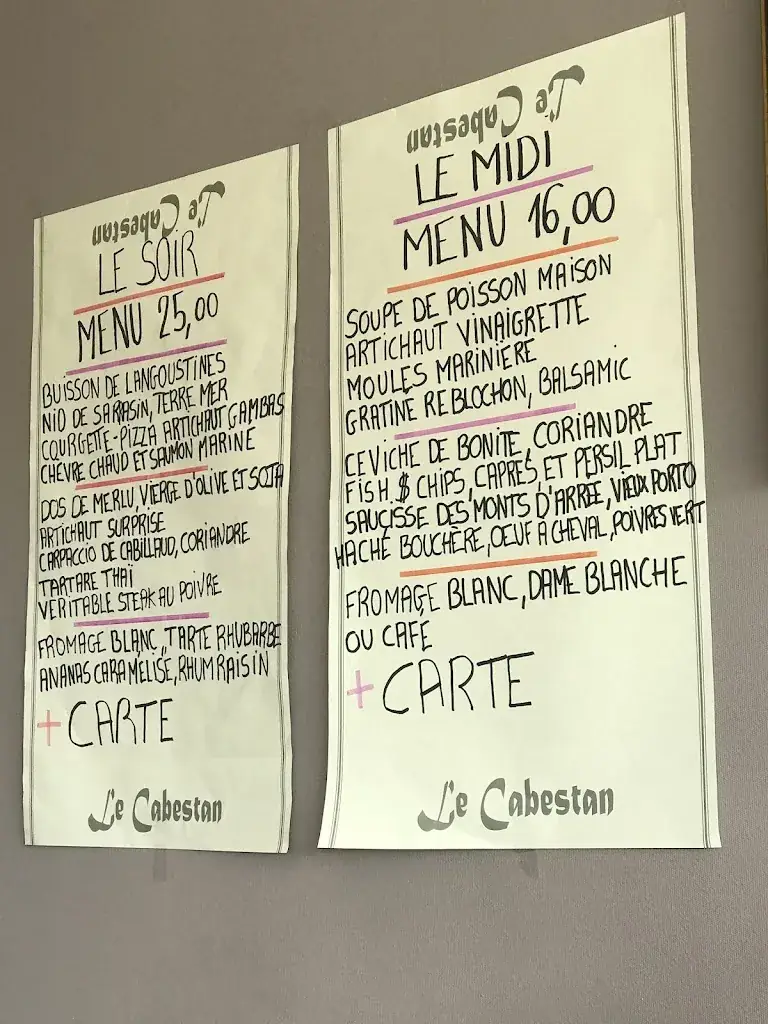 Le Cabestan
LE SOIR
MENU 25,00
BUISSON DE LANGOUSTINES
NID DE SARRASIN, TERRE MER
COURGETTE-PIZZA ARTICHAUT GAMBAS
CHÈVRE CHAUD ET SAUMON MARINÉ
DOS DE MERLU, VIERGE D'OLIVE ET SOJA
ARTICHAUT SURPRISE
CARPACCIO DE CABILLAUD, CORIANDRE
TARTARE THAÏ
VERITABLE STEAK AU POIVRE
FROMAGE BLANC, TARTE RHUBARBE
ANANAS CARAMELISE, RHUM RAISIN
+ CARTE
Le Cabestan
Le Cabestan
LE MIDI
MENU 16,00
SOUPE DE POISSON MAISON
ARTICHAUT VINAIGRETTE
MOULES MARINIÈRE
GRATINÉ REBLOCHON, BALSAMIC
CEVICHE DE BONITE, CORIANDRE
FISH $ CHIPS, CAPRES, ET PERSIL PLAT
SAUCISSE DES MONTS D'ARRÉE, VIEUX PORTO
HACHÉ BOUCHÈRE, OEUF A CHEVAL, POIVRES VERT
FROMAGE BLANC, DAME BLANCHE
OU CAFE
+ CARTE
Le Cabestan